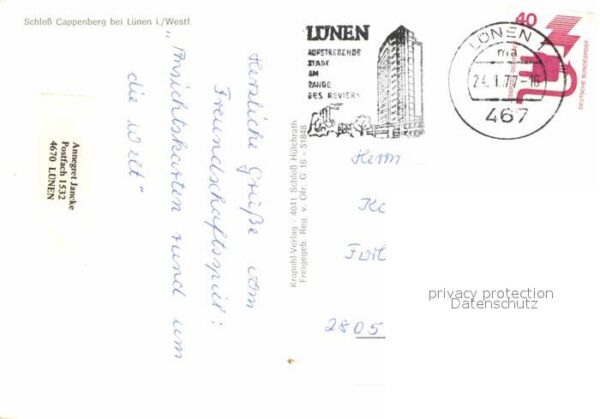 Schloß Cappenberg bei Lünen i./Westf.
Herzliche Grüße vom
Freundschaftsspiel:
"Ansichtskarten rund um
die Welt"
Annegret Jancke
Postfach 1532
4670 LÜNEN
Krapohl-Verlag - 4041 Schloß Hülchrath
Freigegeb. Reg. v. Ofr. G 16 - 51848
LÜNEN
AUFSTREBENDE
STADT
AM
RANDE
DES REVIERS
LÜNEN 1
ma
24.1.77-16
467
40
DEUTSCHE BUNDESPOST
Herrn
2805
privacy protection
Datenschutz